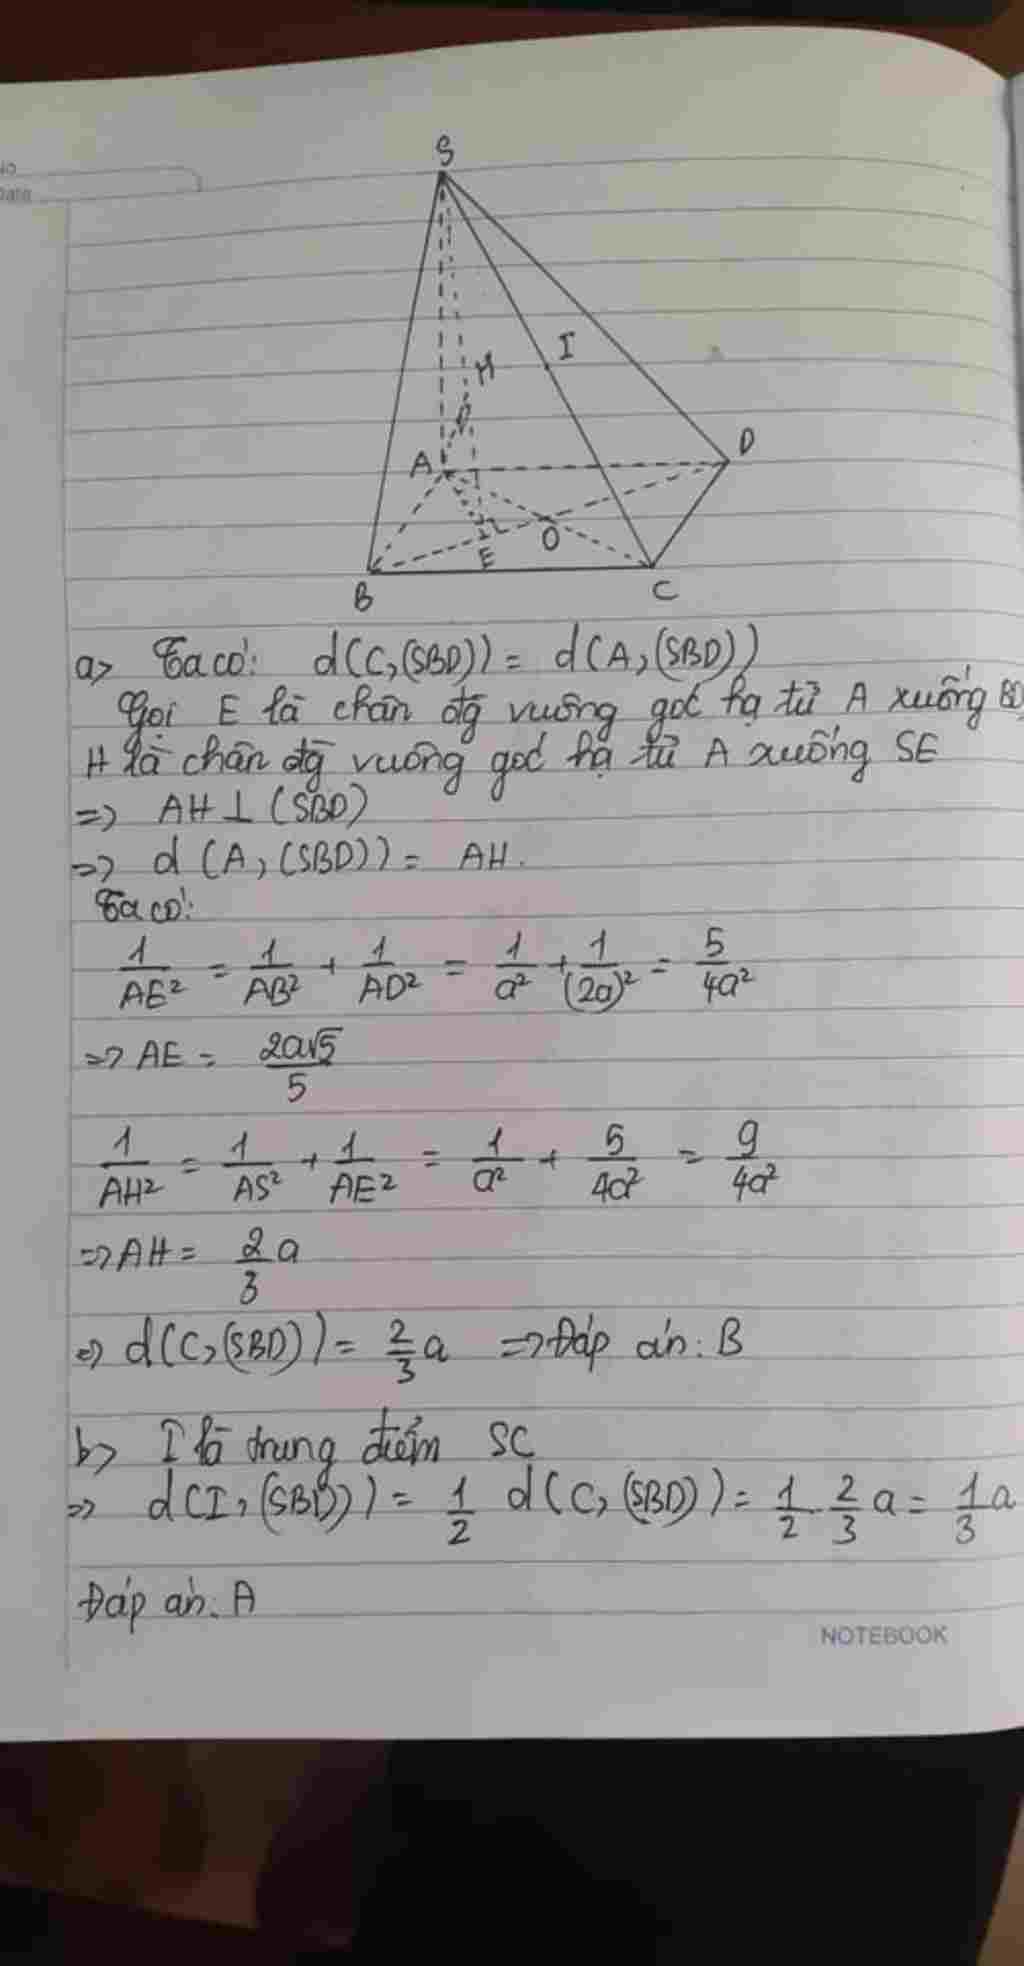 No
Date
S
H
I
A
D
E
O
B
C
a> Ta có: d(C,(SBD)) = d(A,(SBD))
Gọi E là chân đg vuông góc hạ từ A xuống BD,
H là chân đg vuông góc hạ từ A xuống SE
=> AH ⊥ (SBD)
=> d (A,(SBD)) = AH.
Ta có:
1/AE² = 1/AB² + 1/AD² = 1/a² + 1/(2a)² = 5/4a²
=> AE = 2a√5/5
1/AH² = 1/AS² + 1/AE² = 1/a² + 5/4a² = 9/4a²
=> AH = 2/3 a
=> d(C,(SBD)) = 2/3 a => Đáp án: B
b> I là trung điểm SC
=> d(I,(SBD)) = 1/2 d(C,(SBD)) = 1/2 . 2/3 a = 1/3 a
Đáp án. A
NOTEBOOK